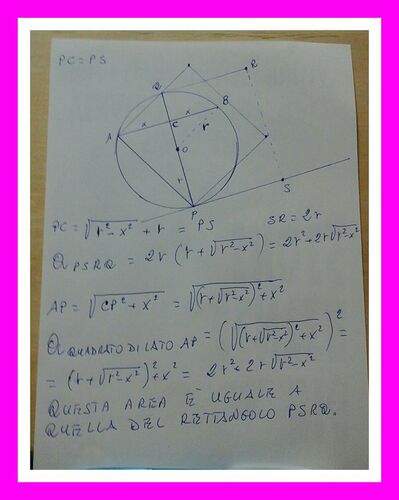 PC = PS
Q
R
A
x
x
B
C
r
O
r
P
S
PC = √(r² - x²) + r = PS
SR = 2r
A PSRQ = 2r (r + √(r² - x²)) = 2r² + 2r√(r² - x²)
AP = √(CP² + x²) = √((r + √(r² - x²))² + x²)
A QUADRATO DI LATO AP = (√((r + √(r² - x²))² + x²))² =
= (r + √(r² - x²))² + x² = 2r² + 2r√(r² - x²)
QUESTA AREA E' UGUALE A
QUELLA DEL RETTANGOLO PSRQ.